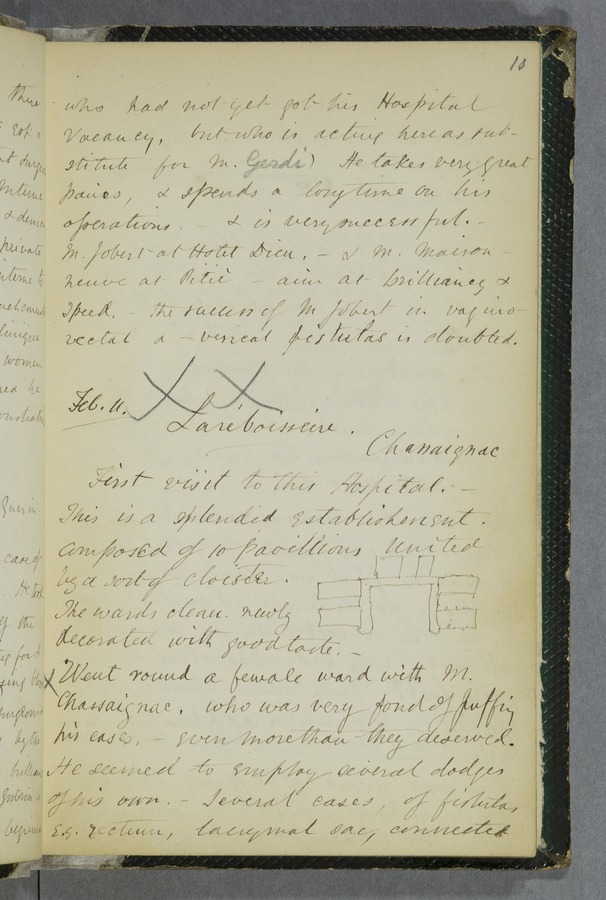 10
who had not yet got his Hospital
Vacancy, but who is acting here as sub-
stitute for M. Gerdi) He takes very great
pains, & spends a long time on his
operations. - & is very successful. -
M. Jobert at Hotel Dieu, - & M. Maison-
neuve at Pitié - aim at brilliancy &
speed. - the success of M Jobert in vagino-
rectal a - vesical fistulas is doubted.
Feb. 11.
Lariboissiere.
Chassaignac
First visit to this Hospital. -
This is a splendid establishment.
composed of 10 pavillions United
by a sort of cloister.
The wards clean. newly
decorated with good taste. -
X Went round a female ward with M.
Chassaignac. who was very fond of puffing
his cases, - even more than they deserved.
He seemed to employ several dodges
of his own. - Several cases, of fistulas,
e.g. rectum, lacrymal sac, connected